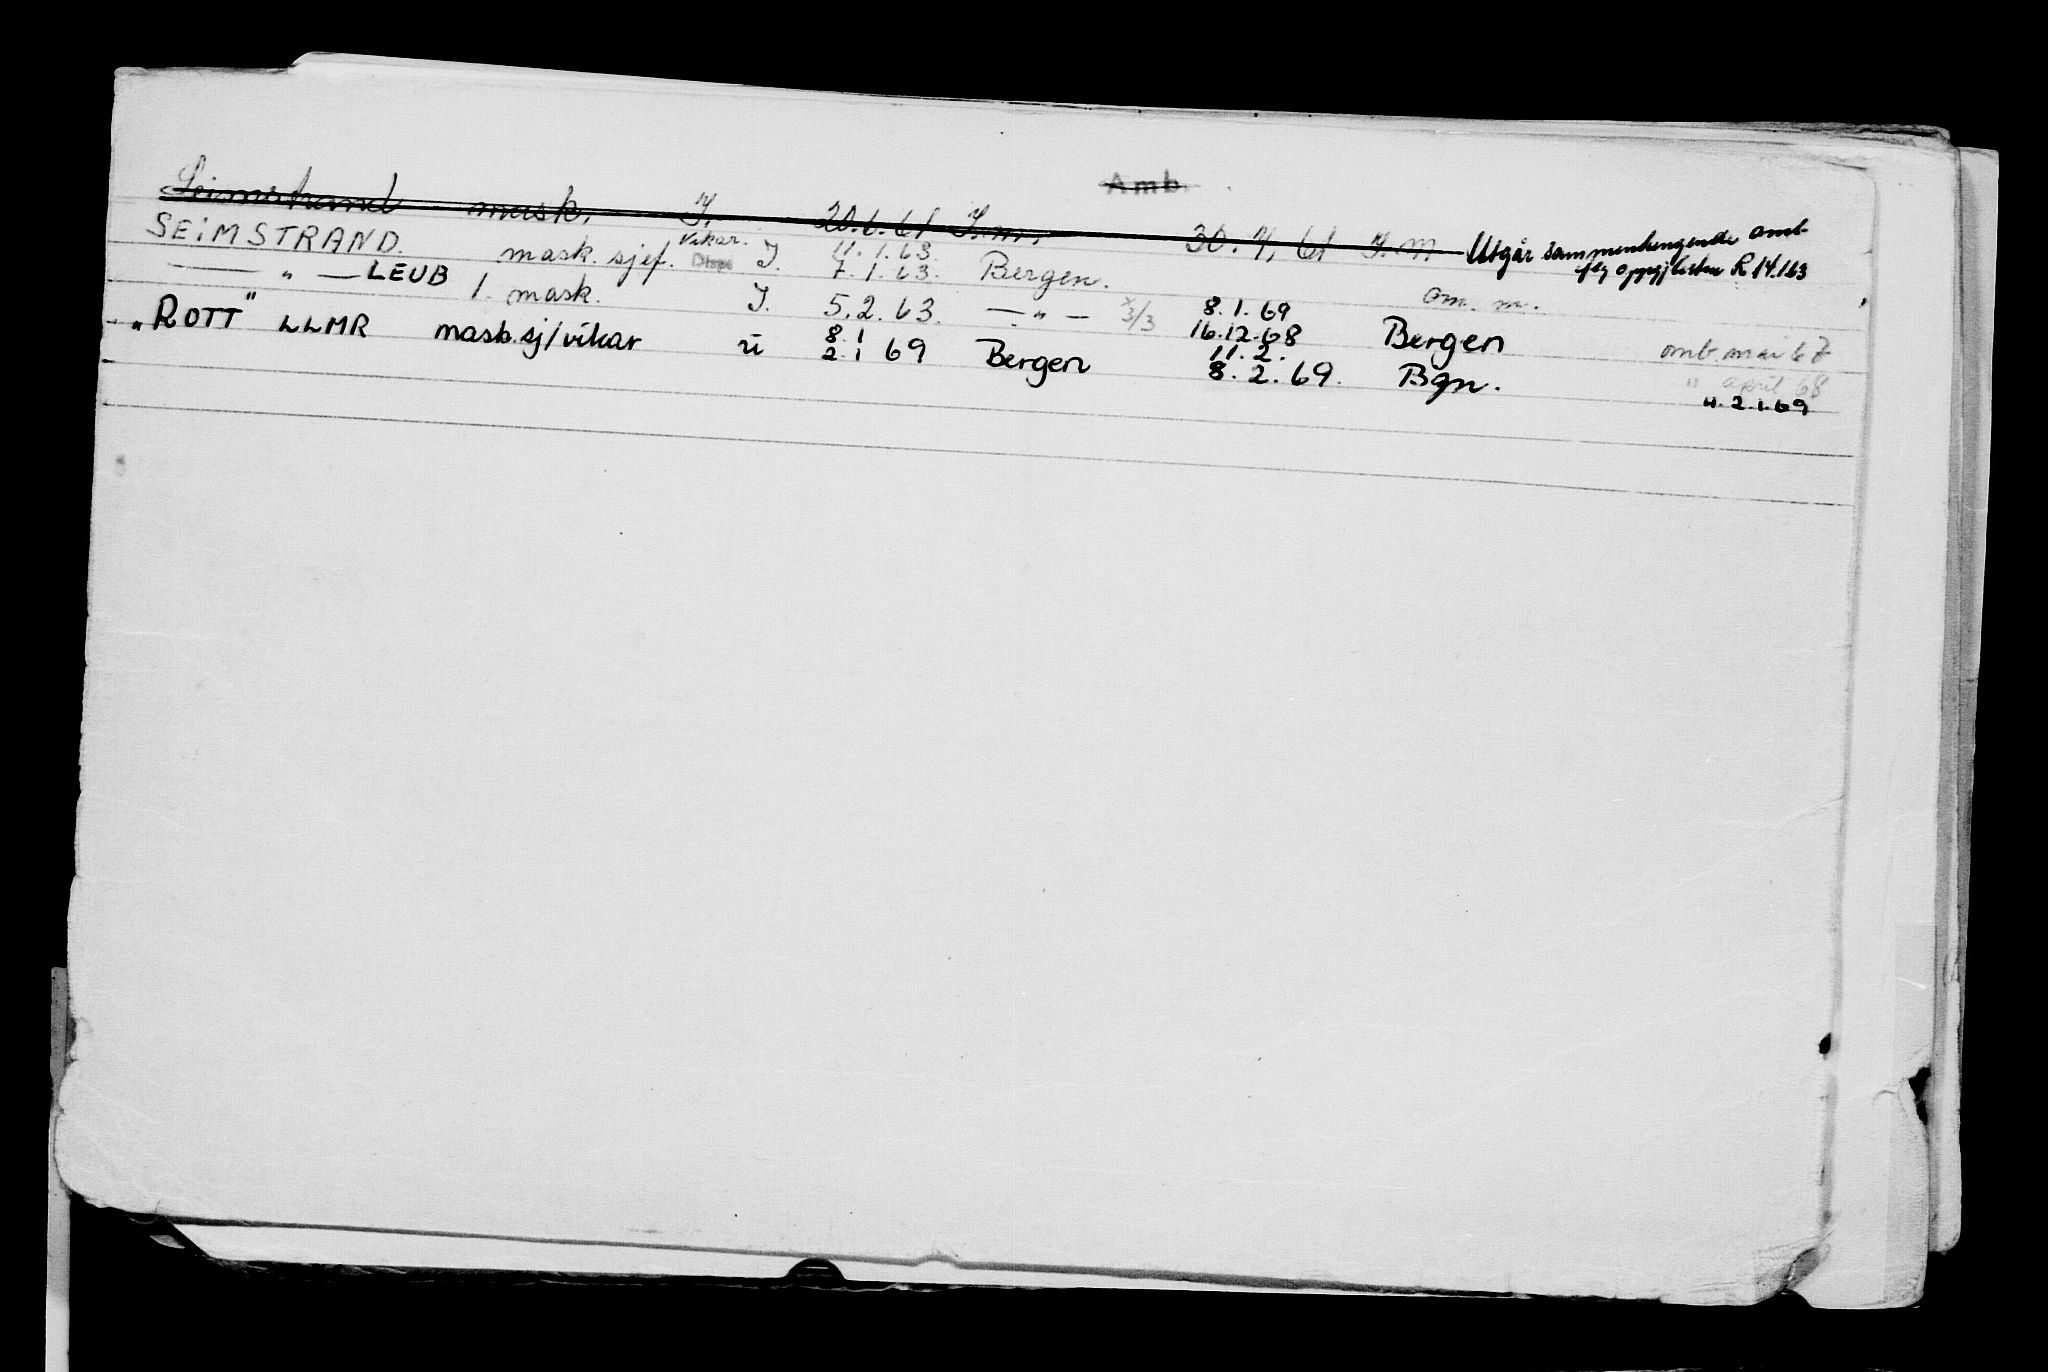 Amb.
Seimstrand mask. I. 20.6.61 I.m. 30.4.61 I.m. Utgår sammenhengende omb-
SEIMSTRAND. mask. sjef. Vikar. Disp. I. 11.1.63. 7.1.63. Bergen. om. m. R 14.163
— " — LEUB 1. mask. I. 5.2.63. — " — 3/3 8.1.69 16.12.68 Bergen omb. mai 67
"ROTT" LLMR mask.sj/vikar ü 8.1 2.1 69 Bergen 11.2. 8.2.69. Bgn. " april 68
". 2.1.69